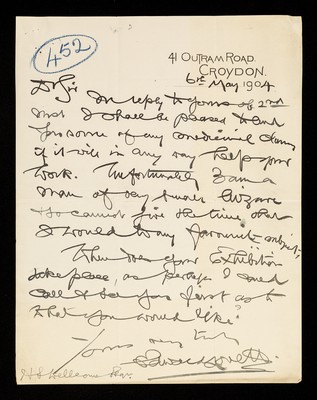 452
41 OUTRAM ROAD.
CROYDON.
6th May 1904
Dr Sir
In reply to yours of 2nd
inst I shall be pleased to lend
you some of my medicinal
if it will in any way help your
work. Unfortunately I am a
man of very busy
& so cannot give the time that
I would to my favourite subject,
When does your Exhibition
take place, as perhaps I could
call & see you first as to
what you would like?
Yours very truly
Edward Lovett.
H S Wellcome Esq.